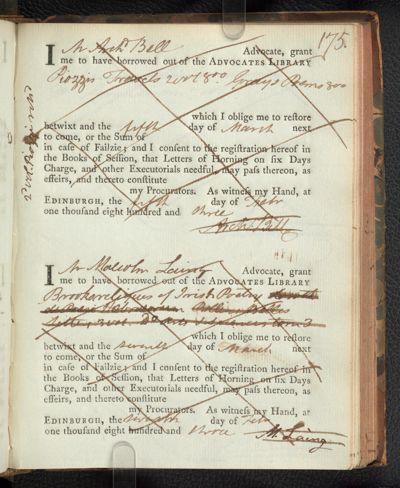 175.
I Mr Archd Bell Advocate, grant
me to have borrowed out of the ADVOCATES LIBRARY
Piozzis Travels 2 vol 8vo Grays Poems 8vo
which I oblige me to reſtore
betwixt and the fifth day of March next
to come, or the Sum of
in caſe of Failzie; and I conſent to the regiſtration hereof in
the Books of Seſſion, that Letters of Horning on ſix Days
Charge, and other Executorials needful, may paſs thereon, as
effeirs, and thereto conſtitute
my Procurators. As witneſs my Hand, at
EDINBURGH, the fifth day of Febr
one thouſand eight hundred and three
Archd Bell
I Mr Malcolm Laing Advocate, grant
me to have borrowed out of the ADVOCATES LIBRARY
Brookes reliques of Irish Poetry
which I oblige me to reſtore
betwixt and the seventh day of March next
to come, or the Sum of
in caſe of Failzie; and I conſent to the regiſtration hereof in
the Books of Seſſion, that Letters of Horning on ſix Days
Charge, and other Executorials needful, may paſs thereon, as
effeirs, and thereto conſtitute
my Procurators. As witneſs my Hand, at
EDINBURGH, the seventh day of Feb
one thouſand eight hundred and three
M. Laing